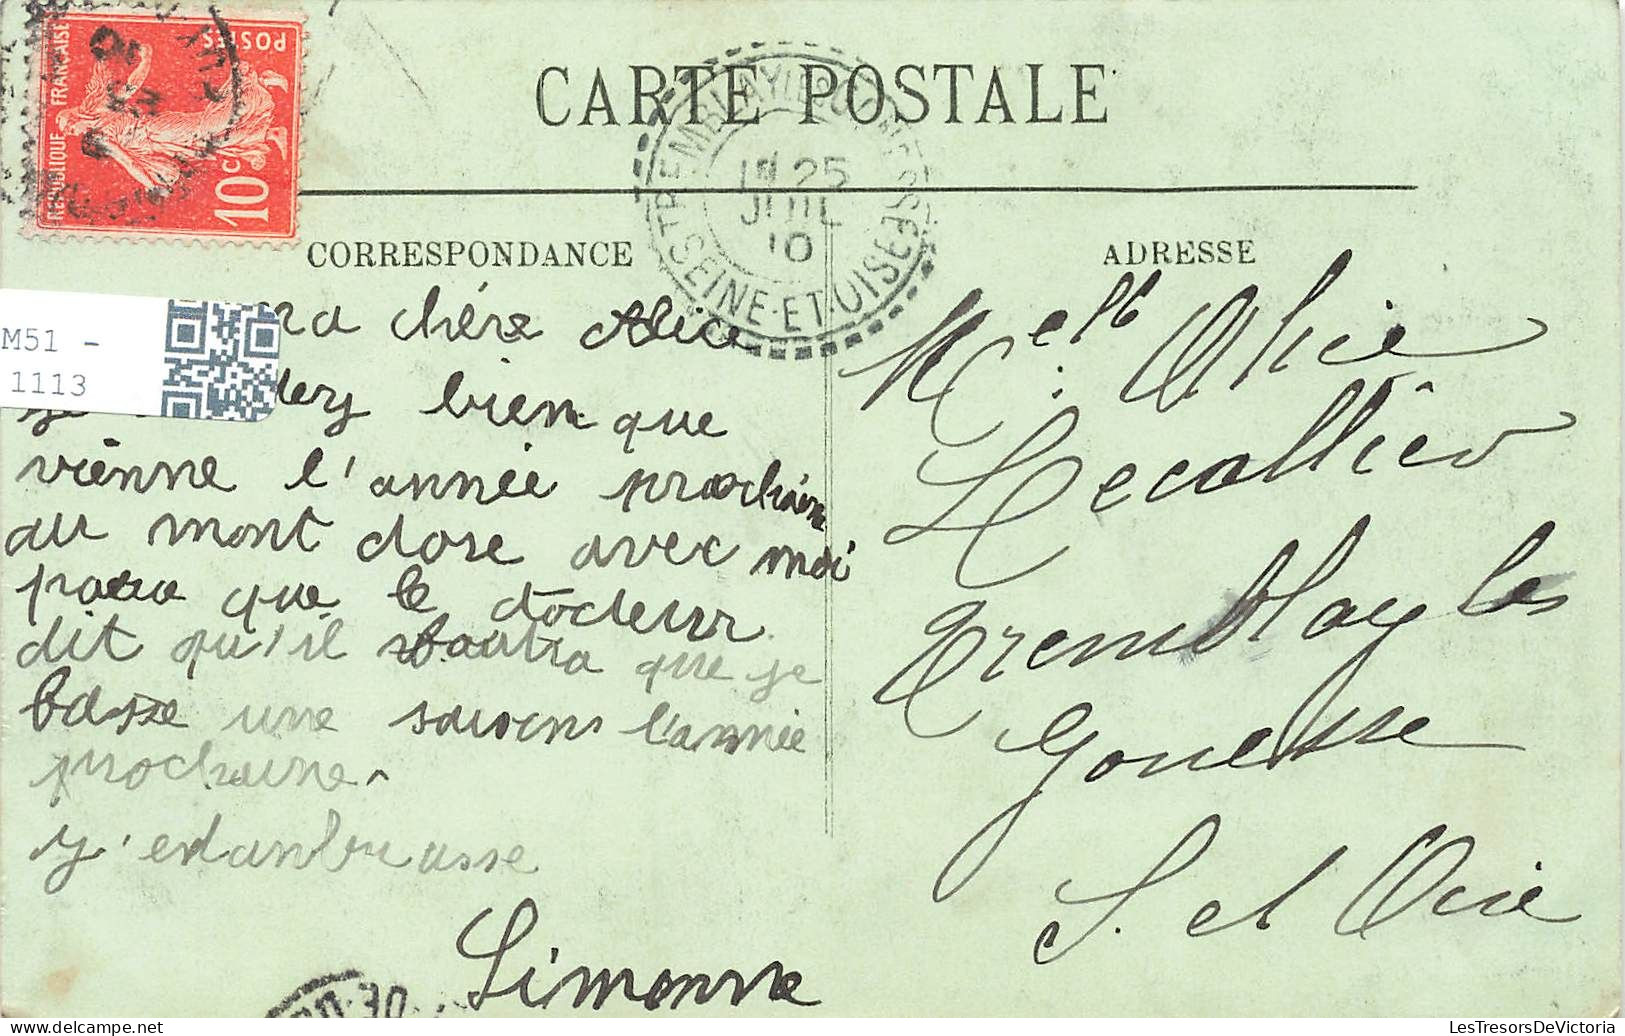 REPUBLIQUE FRANCAISE
POSTES
10c
CARTE POSTALE
TREMBLAY
25
JUIL
10
SEINE-ET-OISE
CORRESPONDANCE
ADRESSE
M51 -
1113
chére Alice
bien que
vienne l'année prochaine
au mont dore avec moi
que le docteur
dit qu'il que je
une l'année
prochaine
Simonne
Melle Alice
Lecallier
Tremblay les
Gonesse
S. et Oise
LesTresorsDeVictoria